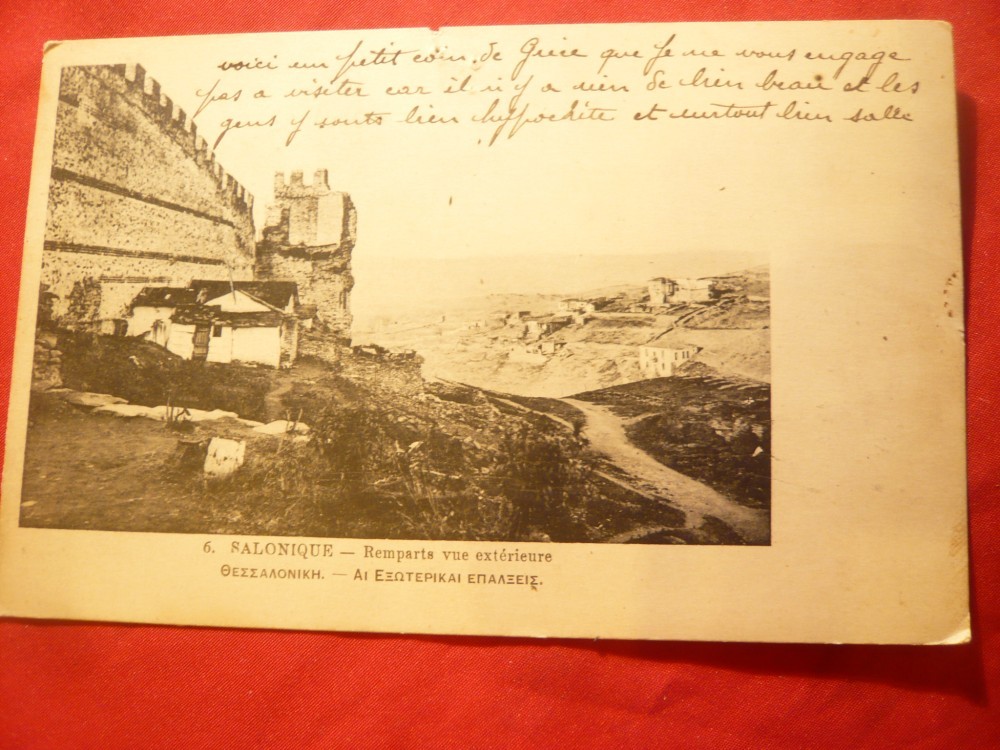 voici un petit coin de Grèce que je ne vous engage
pas a visiter car il n'y a rien de bien beau et les
gens y sonts bien hypochite et surtout bien salle
6. SALONIQUE — Remparts vue extérieure
ΘΕΣΣΑΛΟΝΙΚΗ. — ΑΙ ΕΞΩΤΕΡΙΚΑΙ ΕΠΑΛΞΕΙΣ.